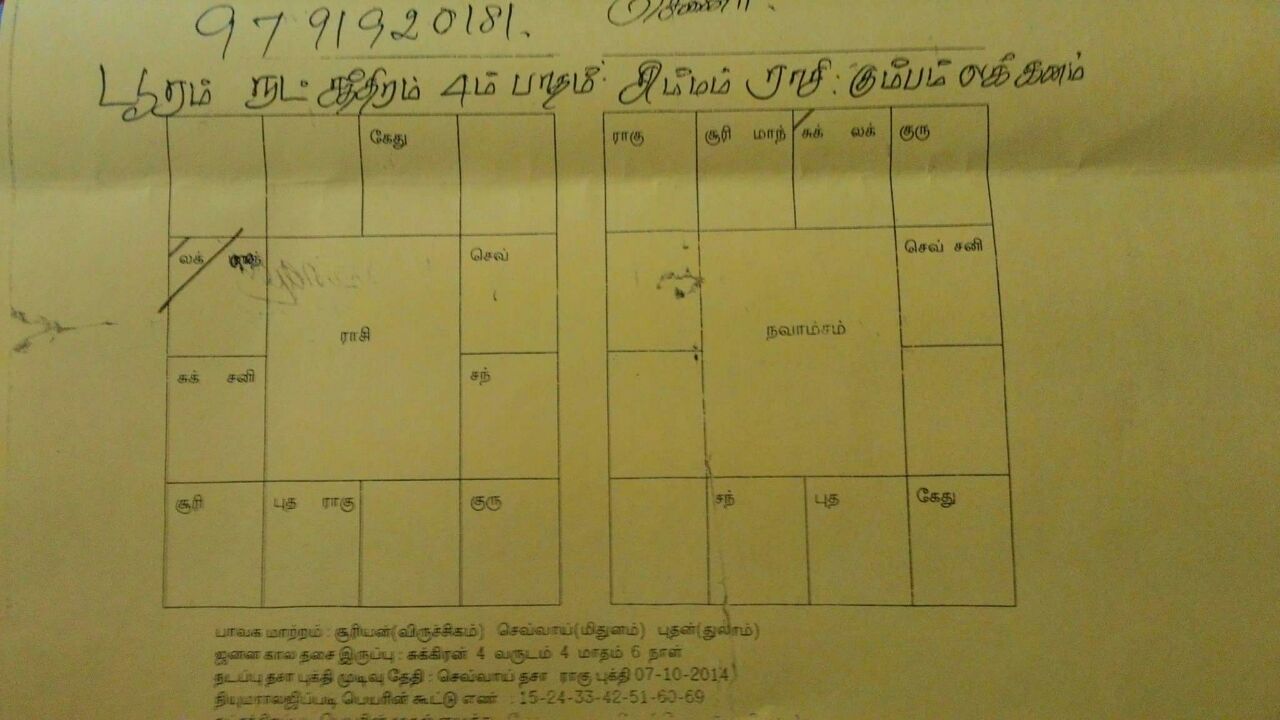 9791920181.
பூரம் நட்சத்திரம் 4ம் பாதம். சிம்மம் ராசி: கும்பம் லக்கினம்
கேது
ராகு சூரி மாந் சுக் லக் குரு
லக் மாந் செவ்
செவ் சனி
ராசி
நவாம்சம்
சுக் சனி சந்
சூரி புத ராகு குரு
சந் புத கேது
பாவக மாற்றம் : சூரியன்(விருச்சிகம்) செவ்வாய்(மிதுனம்) புதன்(துலாம்)
ஜனன கால தசை இருப்பு : சுக்கிரன் 4 வருடம் 4 மாதம் 6 நாள்
நடப்பு தசா புக்தி முடிவு தேதி : செவ்வாய் தசா ராகு புக்தி 07-10-2014)
நியுமராலஜிப்படி பெயரின் கூட்டு எண் : 15-24-33-42-51-60-69